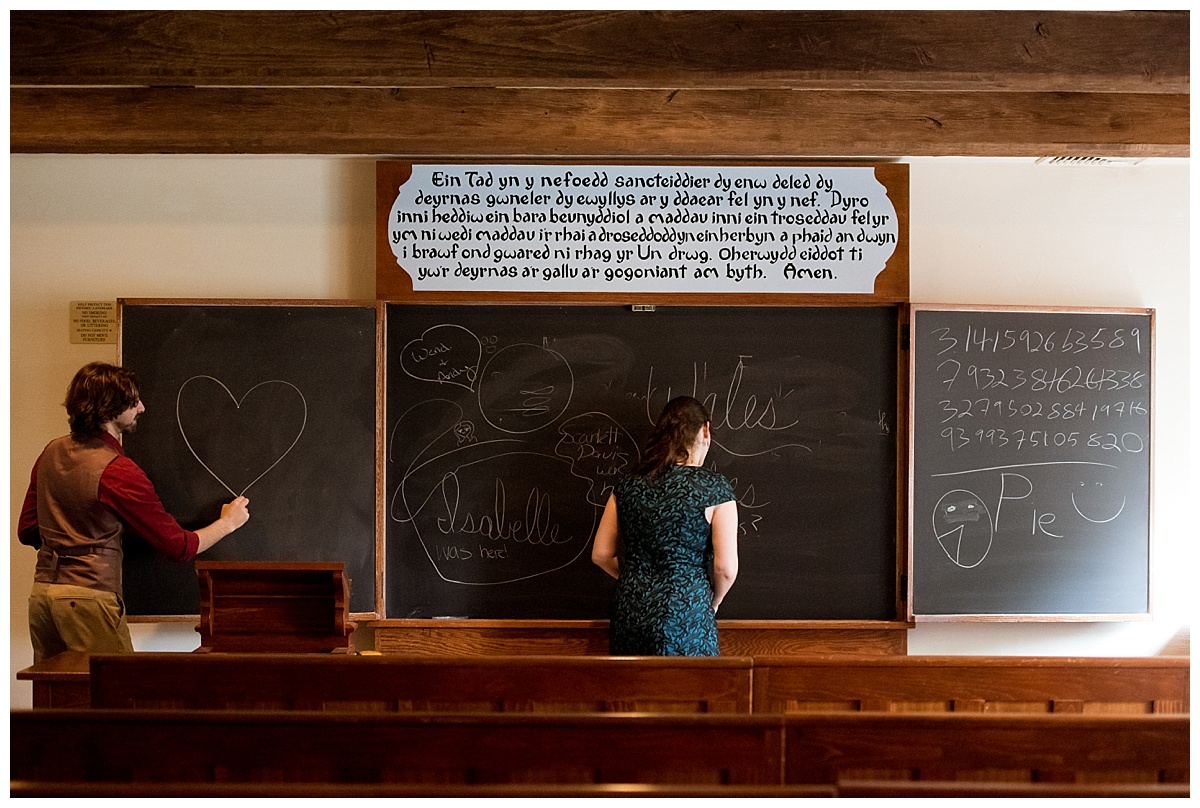 Ein Tad yn y nefoedd sancteiddier dy enw deled dy
deyrnas gwneler dy ewyllys ar y ddaear fel yn y nef. Dyro
inni heddiw ein bara beunyddiol a maddau inni ein troseddau fel yr
ym ni wedi maddau i'r rhai a droseddodd yn ein herbyn a phaid an dwyn
i brawf ond gwared ni rhag yr Un drwg. Oherwydd eiddot ti
yw'r deyrnas a'r gallu a'r gogoniant am byth. Amen.
NO SMOKING
NO FOOD, BEVERAGES,
OR LITTERING
DO NOT MOVE
FURNITURE
Wend
+
Andy
Wales
Scarlett
Davis
were
Isabelle
was here!
3.1415926 63589
7932384626 4338
327950288419716
9399375105820
Pie